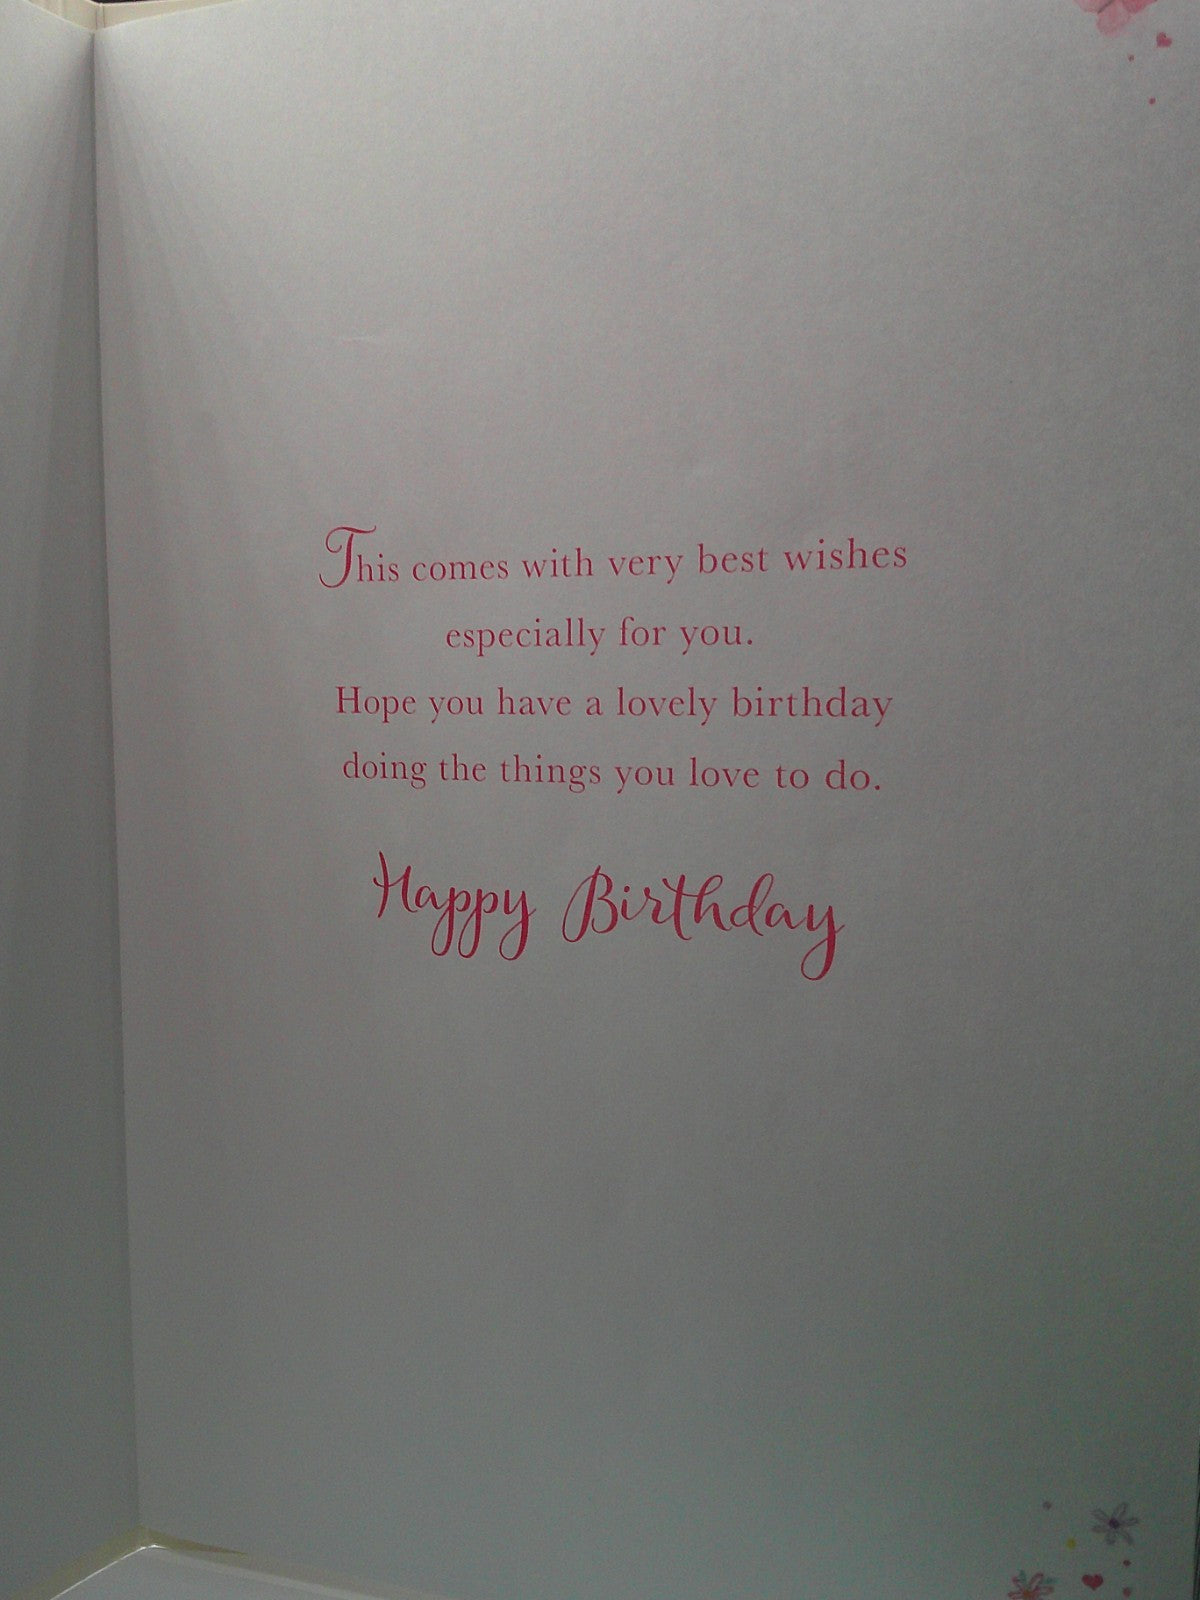 This comes with very best wishes
especially for you.
Hope you have a lovely birthday
doing the things you love to do.
Happy Birthday